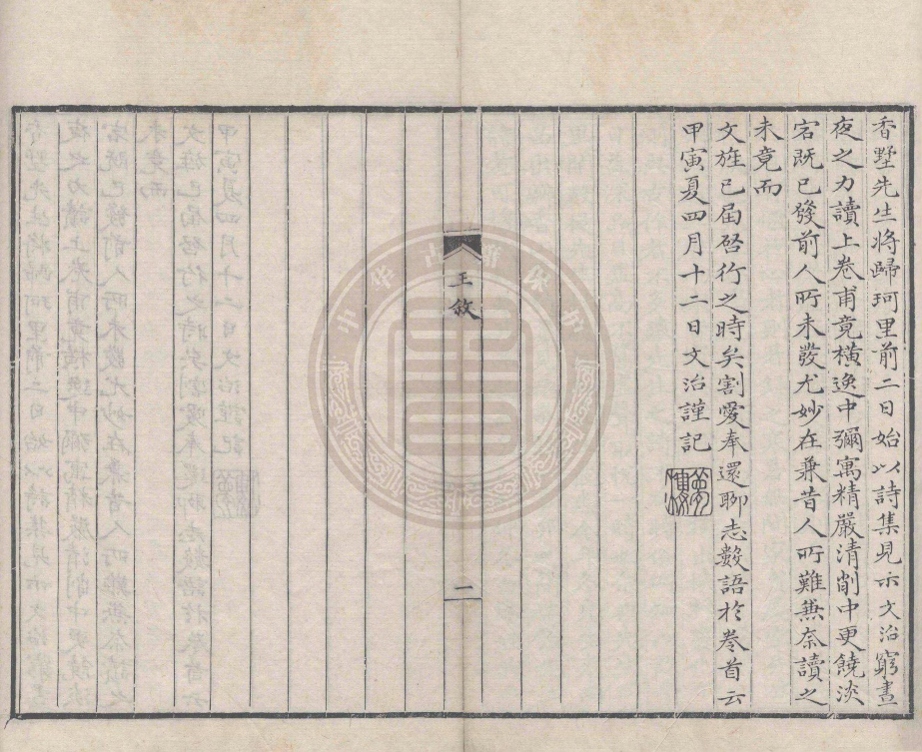 香墅先生將歸珂里前二日始以詩集見示文治窮晝
夜之力讀上卷甫竟橫逸中彌寓精嚴清削中更饒淡
宕既已發前人所未發尤妙在兼昔人所難無奈讀之
未竟而
文旌已屆啓行之時矣割愛奉還聊志數語於卷首云
甲寅夏四月十二日文治謹記
夢樓
王敘
一
中华古籍保护